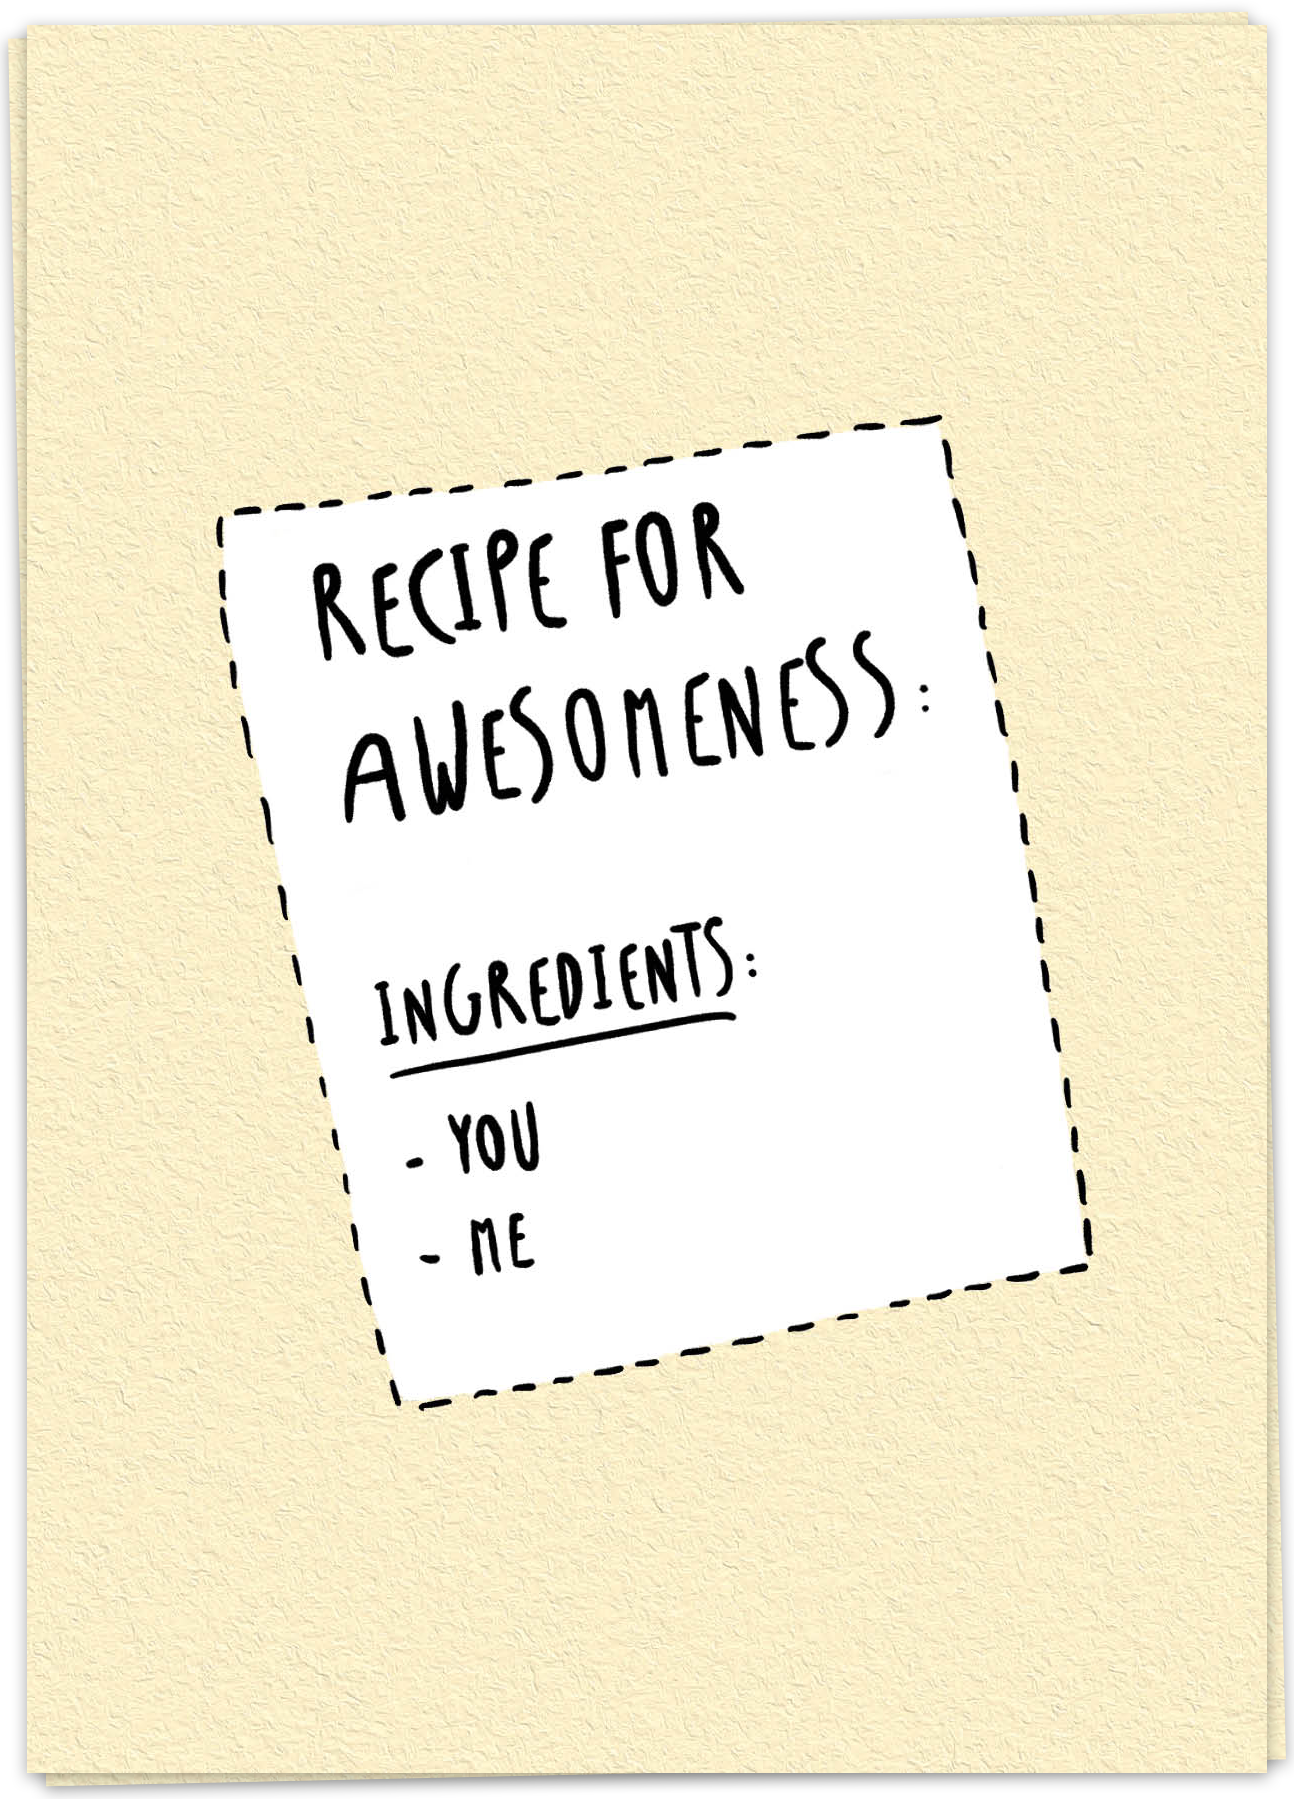 RECIPE FOR
AWESOMENESS:
INGREDIENTS:
- YOU
- ME